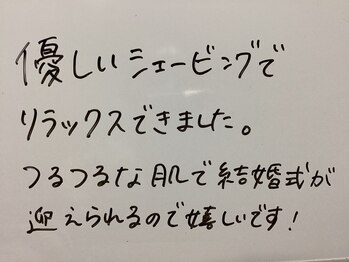 優しいシェービングで
リラックスできました。
つるつるな肌で結婚式が
迎えられるので嬉しいです!